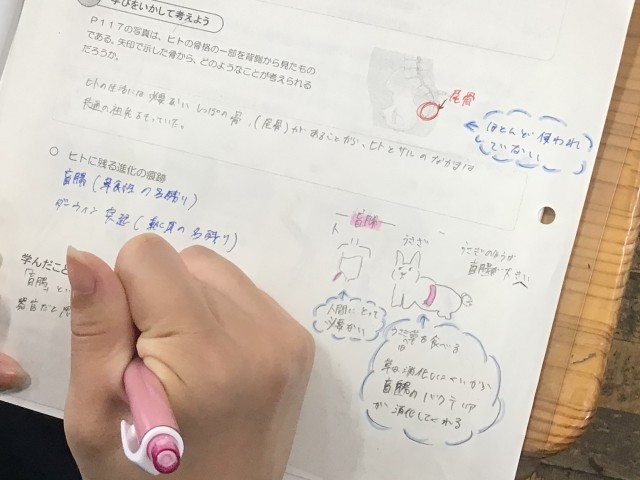 学びをいかして考えよう
P117の写真は、ヒトの骨格の一部を背側から見たもの
である。矢印で示した骨から、どのようなことが考えられる
だろうか。
ヒトの生活には必要ないしっぽの骨(尾骨)があることから、ヒトとサルのなかまは
共通の祖先をもっていた。
尾骨
ほとんど使われ
ていない
○ ヒトに残る進化の痕跡
盲腸(草食性の名残り)
ダーウィン突起(
の名残り)
学んだこと
「盲腸」
器官だと
盲腸
ヒト
うさぎ
うさぎのほうが
盲腸が大きい
人間にとって
必要ない
うさぎは草を食べる
草は消化しにくいから
盲腸のバクテリア
が消化してくれる